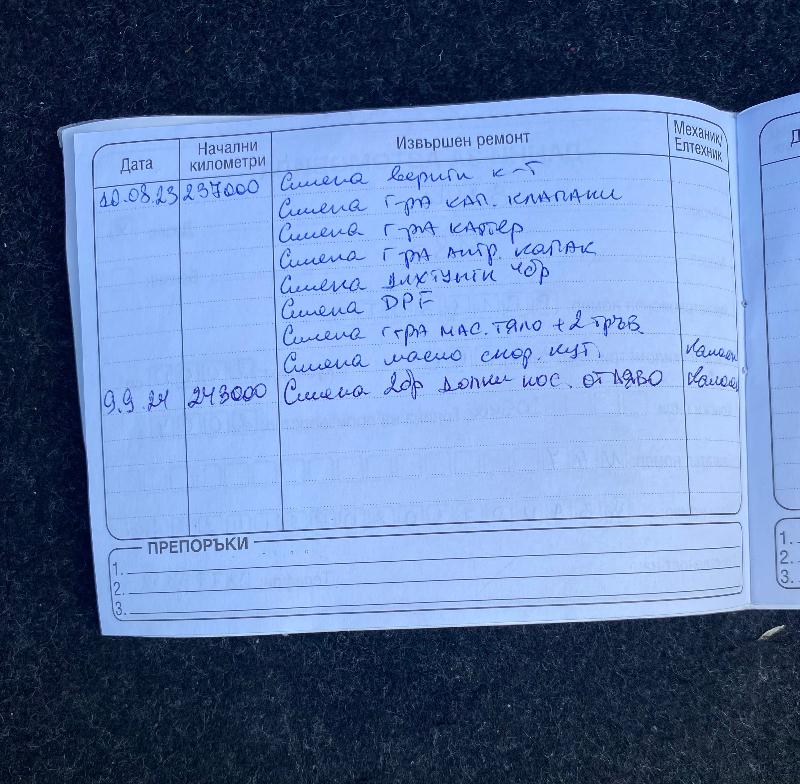 Дата Начални километри Извършен ремонт Механик/ Елтехник
10.08.23 237000 Смена вериги к-т
Смена г-ра кап. клапани
Смена г-ра картер
Смена г-ра антр. капак
Смена 4бр
Смена DPF
Смена г-ра мас. тяло + 2 тръб.
Смена масло скор. кут.
9.9.24 243000 Смена 2бр долни нос. от ляво
ПРЕПОРЪКИ
1.
2.
3.
1.
2.
3.